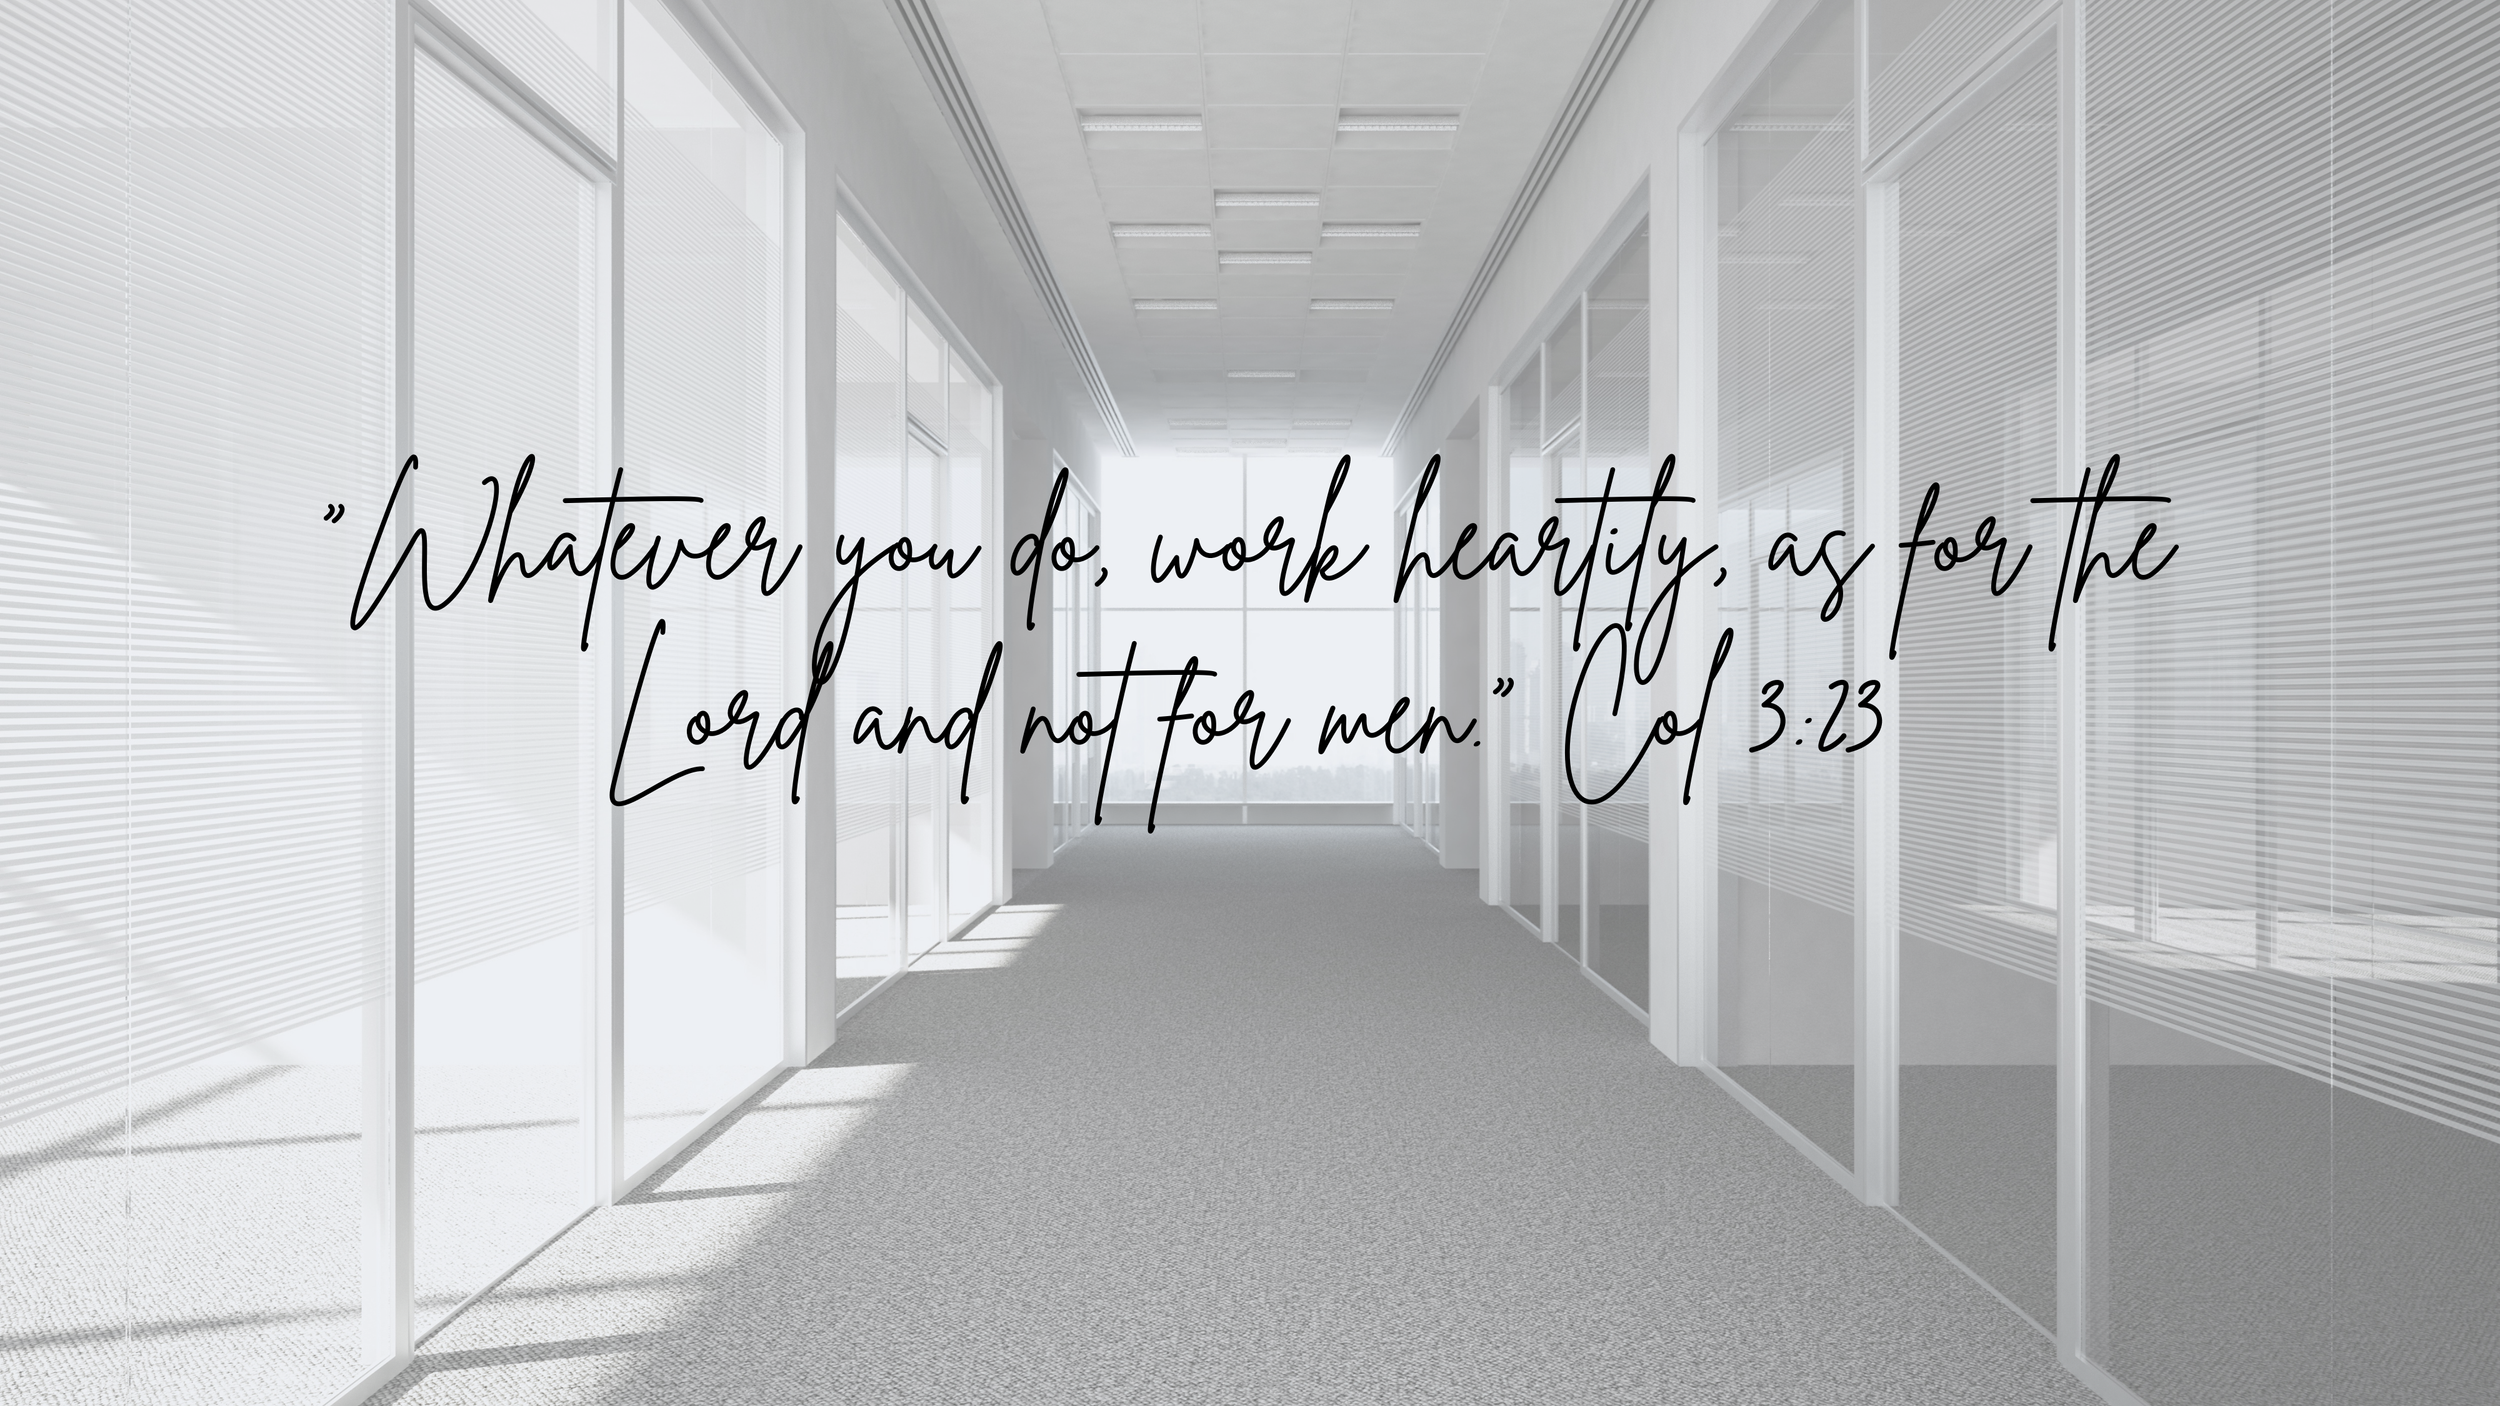 ”Whatever you do, work heartily, as for the
Lord and not for men.” Col 3:23